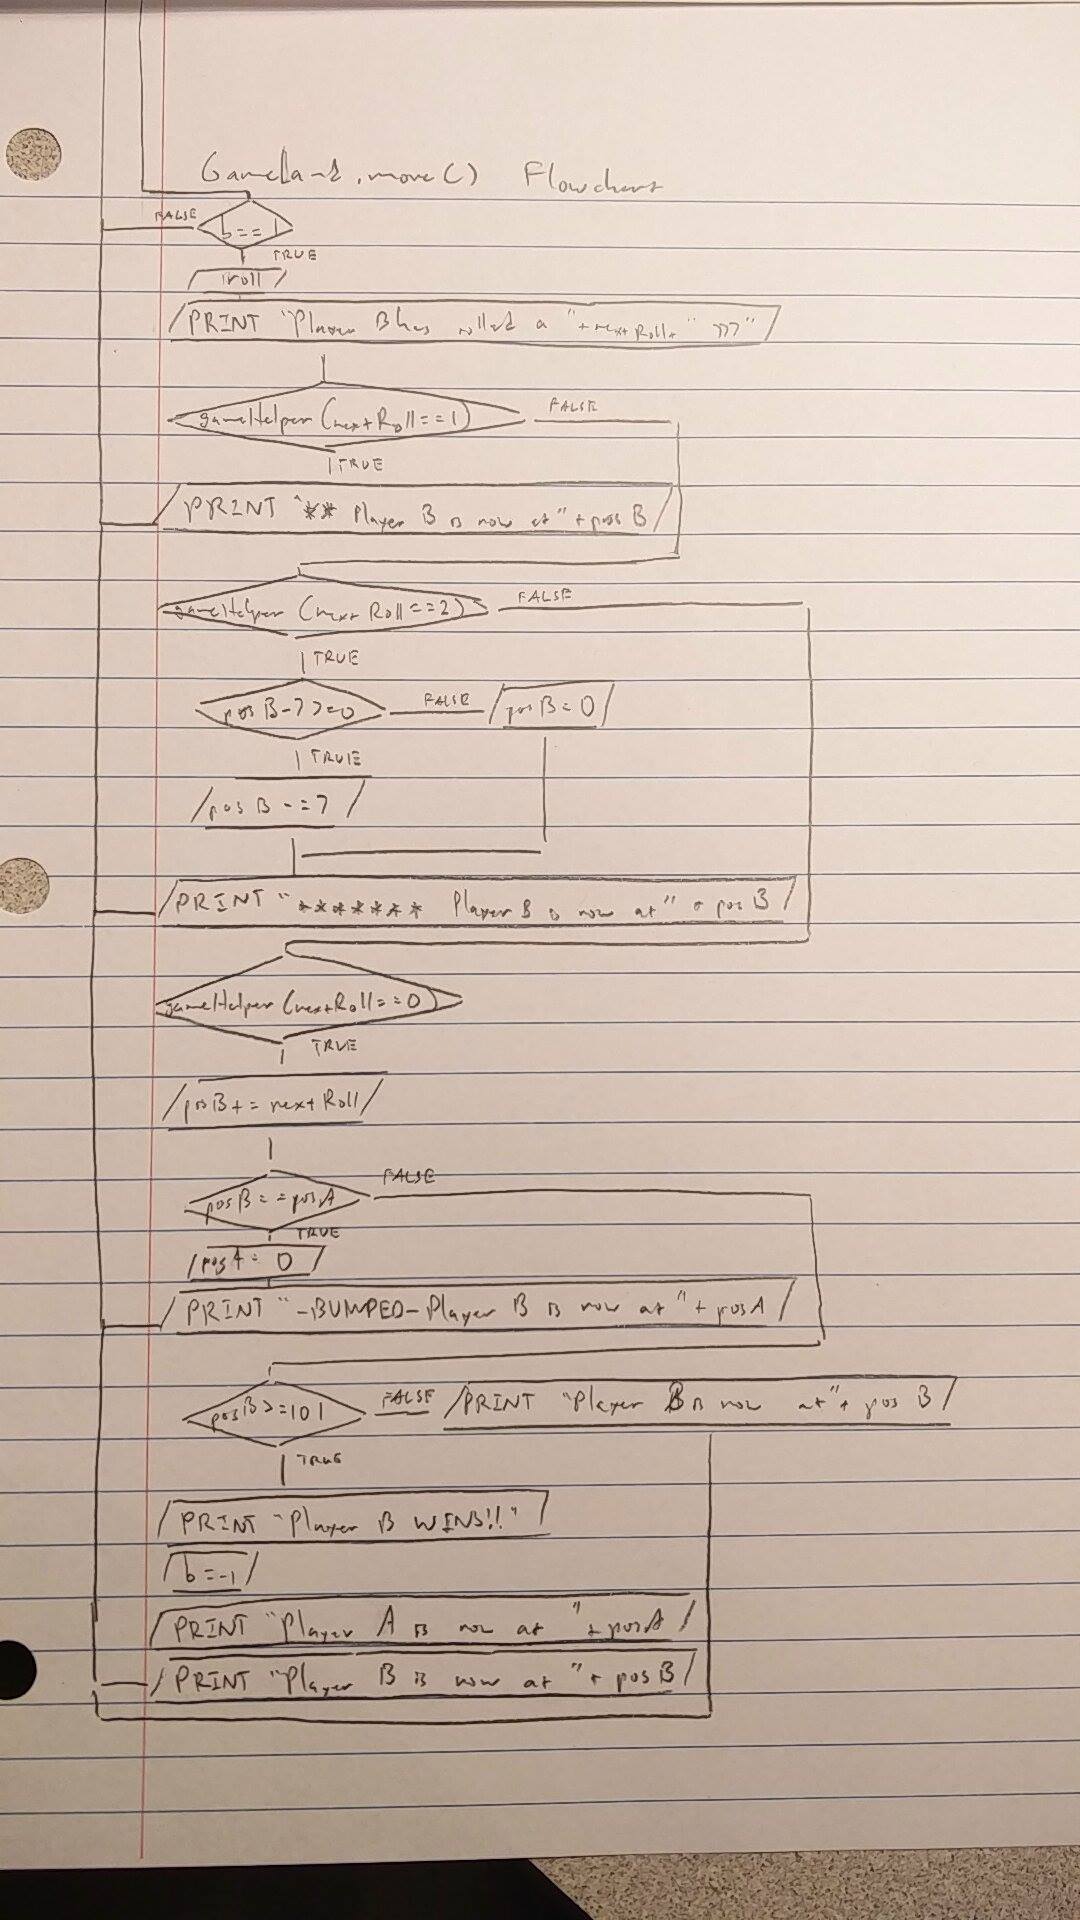 GameLand.move() Flowchart
FALSE b==1
TRUE
roll
PRINT "Player B has rolled a "+nextRoll+" ???"
gameHelper(nextRoll==1) FALSE
TRUE
PRINT "** Player B is now at"+posB
gameHelper(nextRoll==2) FALSE
TRUE
posB-7>=0 FALSE posB=0
TRUE
posB-=7
PRINT "******* Player B is now at" + posB
gameHelper(nextRoll==0)
TRUE
posB+=nextRoll
posB==posA FALSE
TRUE
posA=0
PRINT "-BUMPED-Player B is now at"+posA
posB>=101 FALSE PRINT "Player B is now at"+posB
TRUE
PRINT "Player B WINS!!"
b=-1
PRINT "Player A is now at "+posA
PRINT "Player B is now at "+posB